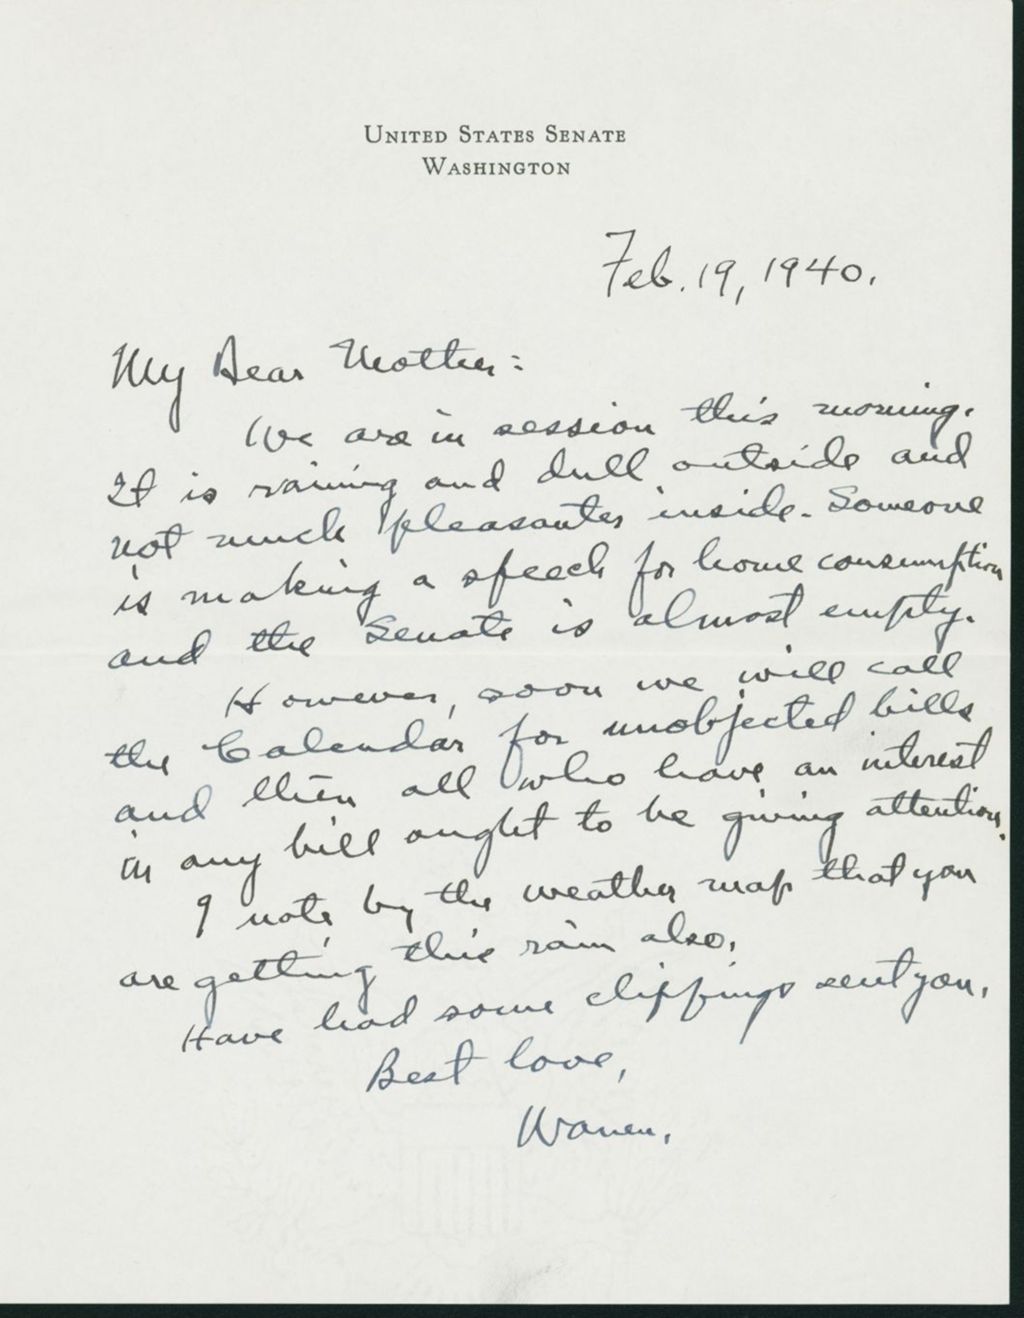 UNITED STATES SENATE
WASHINGTON
Feb. 19, 1940.
My Dear Mother:
We are in session this morning.
It is raining and dull outside and
not much pleasanter inside. Someone
is making a speech for home consumption
and the Senate is almost empty.
However, soon we will call
the Calendar for unobjected bills
and then all who have an interest
in any bill ought to be giving attention.
I note by the weather map that you
are getting this rain also.
Have had some clippings sent you.
Best love,
Warren.